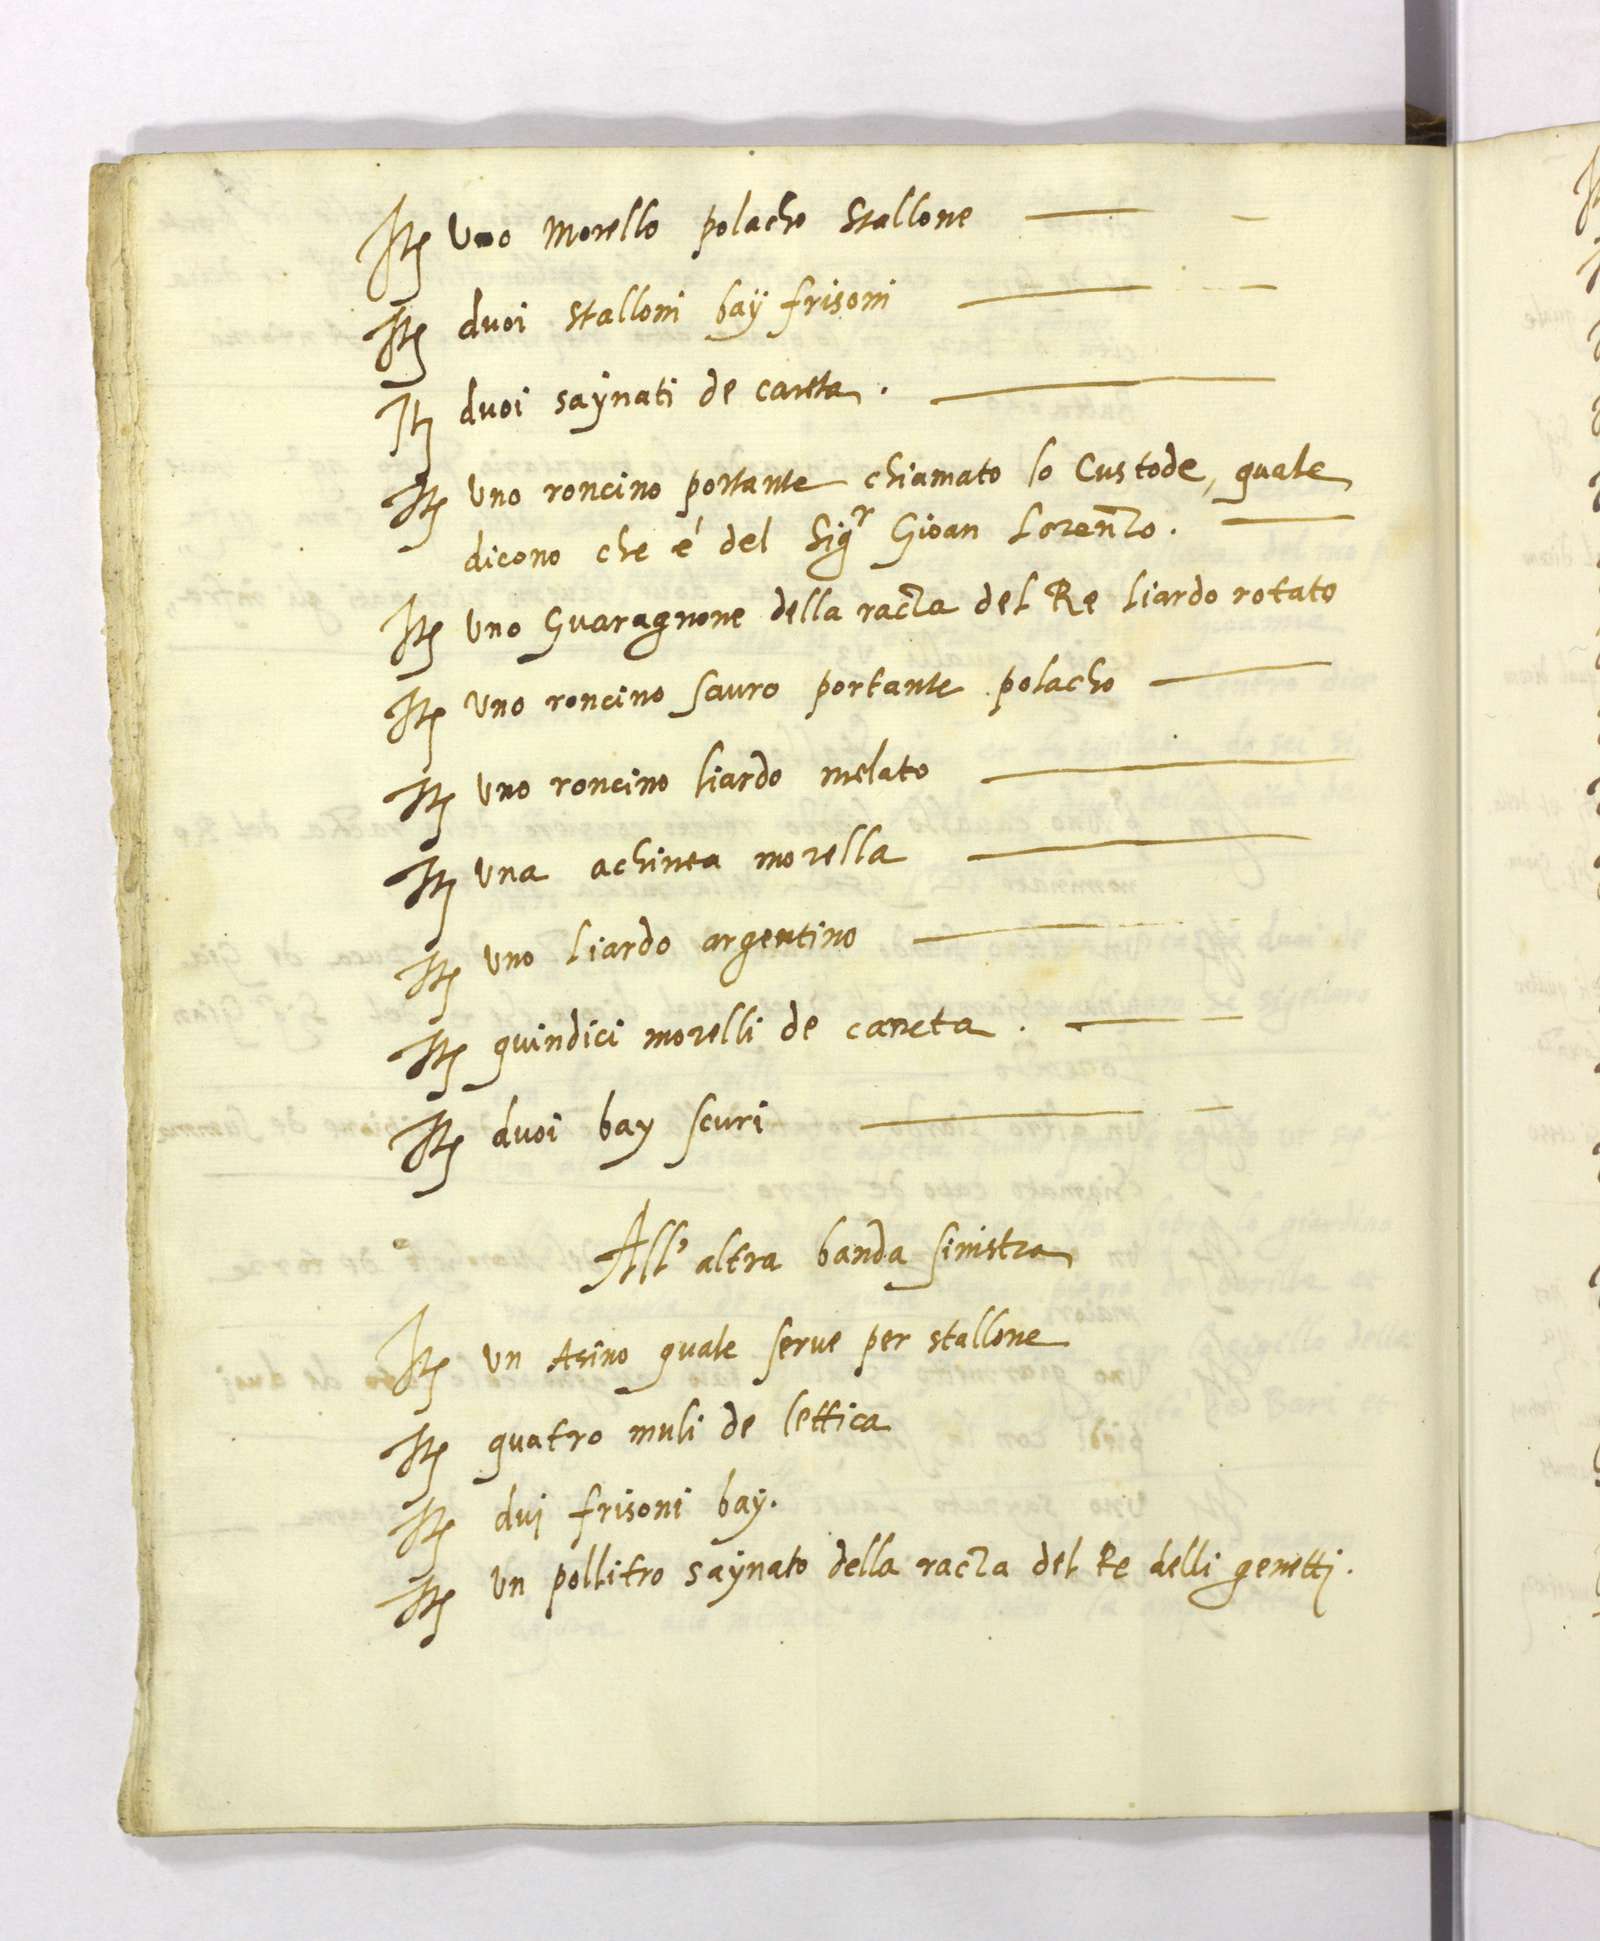 Itē Uno Morello polacho Stallone
Itē duoi stalloni baÿ frisoni
Itē duoi saÿnati de careta.
Itē uno roncino portante chiamato lo Custode, quale
dicono che é del Sigr Gioan Lorenzo.
Itē uno Guaragnone della racza del Re liardo rotato
Itē uno roncino sauro portante polacho
Itē uno roncino liardo melato
Itē una achinea morella
Itē uno liardo argentino
Itē quindici morelli de careta.
Itē duoi bay scuri
All' altra banda sinistra
Itē un Asino quale serue per stallone
Itē quatro muli de lettica
Itē dui frisoni bay.
Itē un pollitro saÿnato della racza del Re delli genetti.